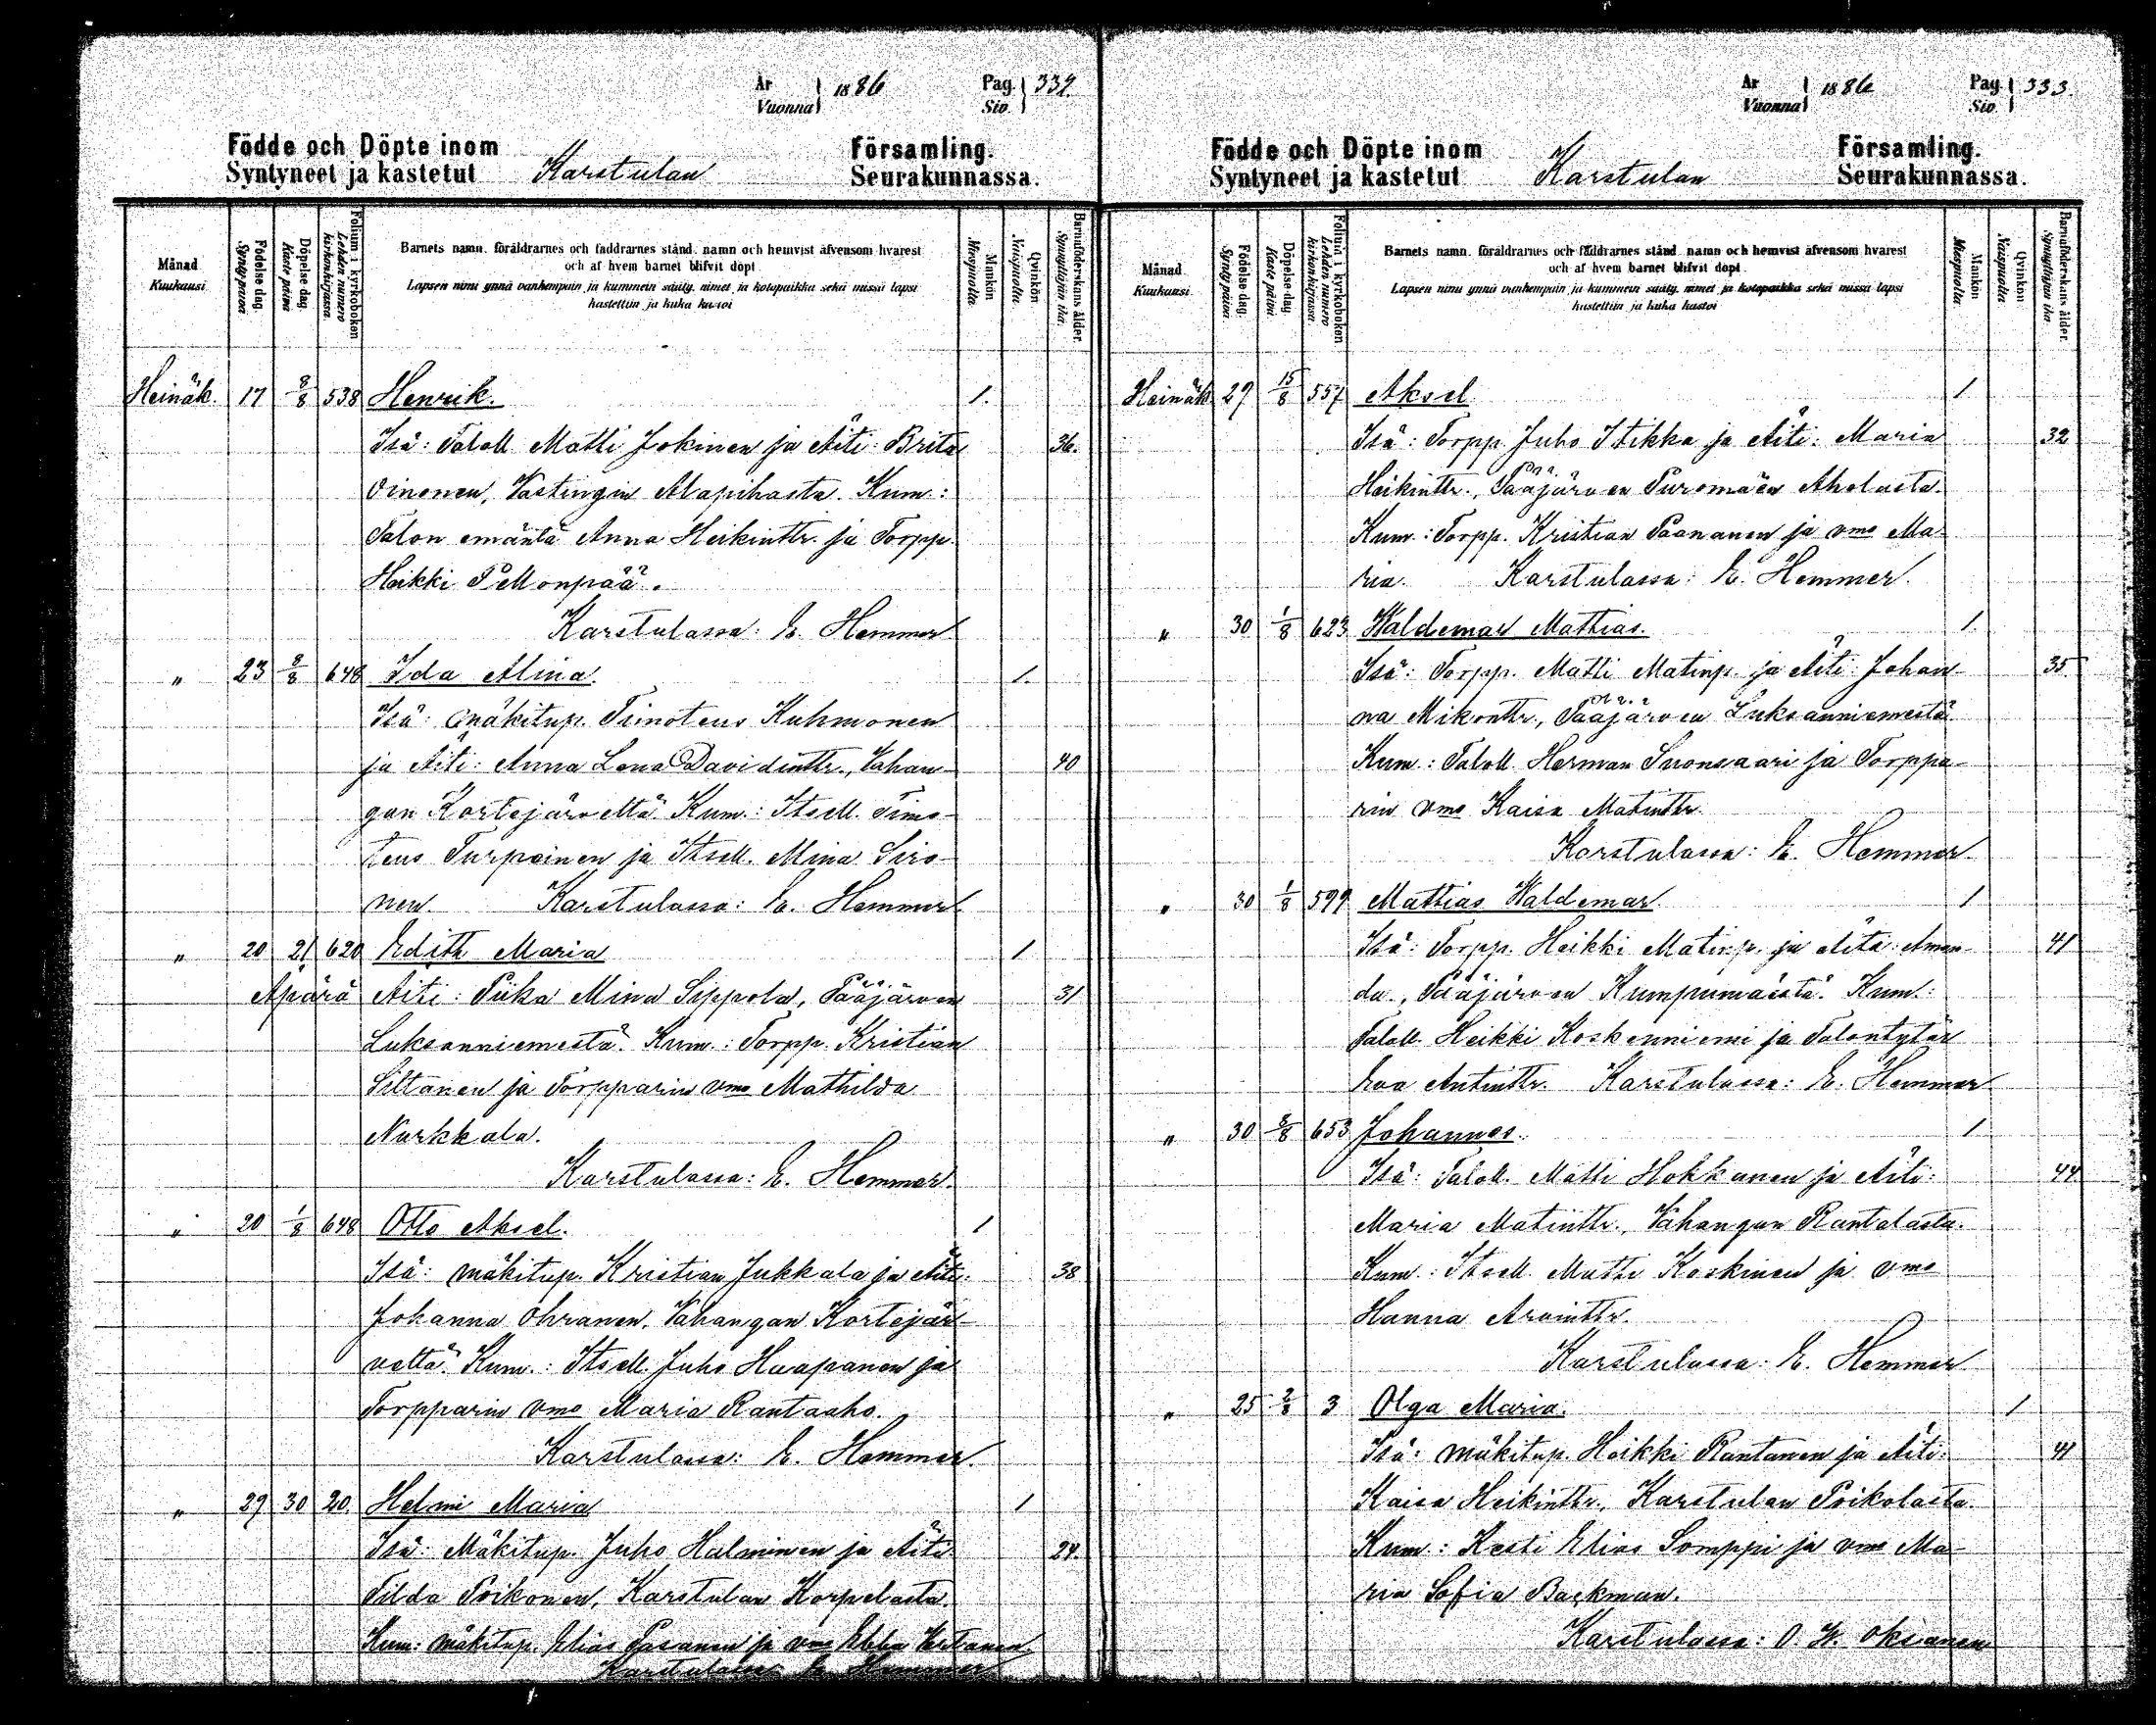 År Vuonna 1886 Pag. Siv. 332.
Födde och Döpte inom Församling.
Syntyneet ja kastetut Karstulan Seurakunnassa.
Månad Kuukausi
Födelse dag. Synty päivä
Döpelse dag. Kaste päivä
Folium i kyrkoboken Lehden numero kirkonkirjassa.
Barnets namn, föräldrarnes och faddrarnes stånd, namn och hemvist äfvensom hvarest
och af hvem barnet blifvit döpt
Lapsen nimi ynnä vanhempain ja kummein sääty, nimet ja kotopaikka sekä missä lapsi
kastettiin ja kuka kastoi
Mankön Miespuolta.
Qvinkön Naispuolta.
Barnaföderskans ålder. Synnyttäjän ikä.
Heinäk. 17 8/8 538 Henrik. 1.
Isä: Taloll. Matti Jokinen ja Äiti: Brita 36.
Oinonen, Vastingin Alapihasta. Kum.:
Talon emäntä Anna Heikintr. ja Torpp.
Heikki Pellonpää.
Karstulassa: E. Hemmer
" 23 8/8 648 Ida Alina. 1.
Isä: mäkitup. Timoteus Kuhmonen
ja Äiti: Anna Lena Davidintr., Vahan- 40
gan Kortejärveltä Kum.: Itsell. Timo-
teus Turpeinen ja Itsell. Mina Siro-
nen. Karstulassa: E. Hemmer
" 20 21 620 Edith Maria 1
Apärä Äiti: Piika Mina Sippola, Pääjärven 31
Luksanniemestä. Kum.: Torpp. Kristian
Siltanen ja Torpparin vmo Mathilda
Nurkkala.
Karstulassa: E. Hemmer.
" 20 1/8 648 Otto Aksel. 1
Isä: mäkitup. Kristian Jukkala ja Äiti: 38
Johanna Ohranen, Vahangan Kortejär-
veltä. Kum.: Itsell. Juho Haapanen ja
Torpparin vmo Maria Rantaaho.
Karstulassa: E. Hemmer.
" 29 30 20. Helmi Maria 1
Isä: Mäkitup. Juho Halminen ja Äiti 24.
Tilda Poikonen, Karstulan Korpelasta.
Kum: mäkitup. Elias Pasanen ja vmo Ebba
Karstulassa E. Hemmer
År Vuonna 1886 Pag. Siv. 333.
Födde och Döpte inom Församling.
Syntyneet ja kastetut Karstulan Seurakunnassa.
Månad. Kuukausi.
Födelse dag. Synty päivä.
Döpelse dag. Kaste päivä.
Folium i kyrkoboken Lehden numero kirkonkirjassa.
Barnets namn, föräldrarnes och fäddrarnes stånd, namn och hemvist äfvensom hvarest
och af hvem barnet blifvit döpt.
Lapsen nimi ynnä vanhempain ja kummein sääty, nimet ja kotopaikka sekä missä lapsi
kastettiin ja kuka kastoi
Mankön Miespuolta.
Qvinkön Naispuolta.
Barnaföderskans ålder. Synnyttäjän ikä.
Heinäk 29 15/8 557 Aksel 1
Isä: Torpp. Juho Itikka ja Äiti: Maria 32
Heikintr., Pääjärven Puromäen Aholasta.
Kum.: Torpp. Kristian Paananen ja vmo Ma-
ria. Karstulassa: E. Hemmer.
" 30 1/8 623 Waldemar Mathias. 1.
Isä: Torpp. Matti Matinp. ja Äiti: Johan- 35
na Mikontr., Pääjärven Luksanniemestä.
Kum.: Taloll. Herman Suonsaari ja Torppa-
rin vmo Kaisa Matintr.
Karstulassa: E. Hemmer.
" 30 1/8 599 Mathias Waldemar 1
Isä: Torpp. Heikki Matinp. ja Äiti: Aman- 41
da, Pääjärven Kumpumäestä. Kum.:
Taloll. Heikki Koskenniemi ja Talontytär
Eva Antintr. Karstulassa: E. Hemmer
" 30 8/8 653 Johannes. 1
Isä: Taloll. Matti Hokkanen ja Äiti: 44
Maria Matintr., Vahangan Rantalasta.
Kum.: Itsell. Matti Koskinen ja vmo
Hanna Arvintr.
Karstulassa: E. Hemmer
" 25 2/8 3 Olga Maria. 1
Isä: mäkitup. Heikki Rantanen ja Äiti: 41
Kaisa Heikintr., Karstulan Poikolasta.
Kum.: Kesti Elias Somppi ja vmo Ma-
ria Sofia Backman.
Karstulassa: O. W. Oksanen